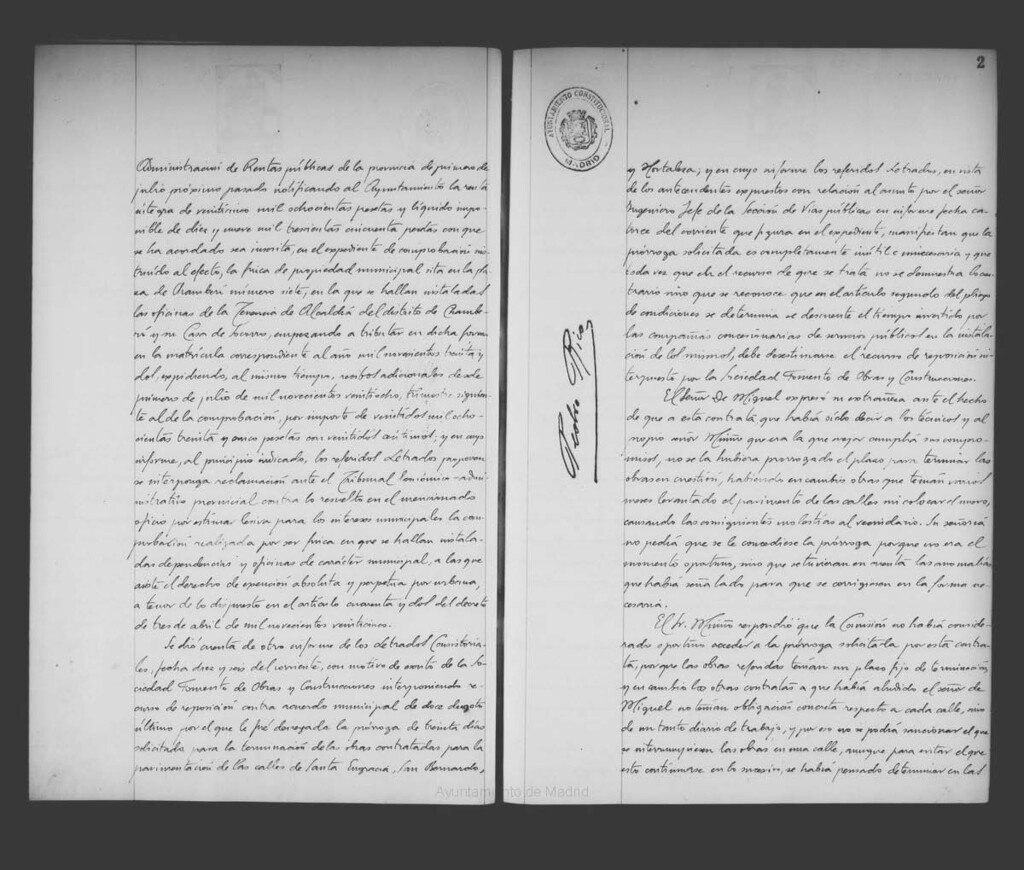 Administración de Rentas públicas de la provincia de primero de
julio próximo pasado notificando al Ayuntamiento la renta
íntegra de veintisiete mil ochocientas pesetas y líquido impo-
nible de diez y nueve mil trescientas cincuenta pesetas con que
se ha acordado sea inscrita, en el expediente de comprobación ins-
truido al efecto, la finca de propiedad municipal sita en la pla-
za de Chamberí número siete, en la que se hallan instaladas
las oficinas de la Tenencia de Alcaldía del distrito de Chambe-
rí y su Casa de Socorro, empezando a tributar en dicha forma
en la matrícula correspondiente al año mil novecientos treinta y
dos, expidiendo, al mismo tiempo, recibos adicionales desde
primero de julio de mil novecientos veintiocho, trimestre siguien-
te al de la comprobación, por importe de veintidos mil ocho-
cientas treinta y cinco pesetas con veintidos céntimos; y en cuyo
informe, al principio indicado, los referidos Letrados proponen
se interponga reclamación ante el Tribunal Económico-admi-
nistrativo provincial contra lo resuelto en el mencionado
oficio por estimar lesiva para los intereses municipales la com-
probación realizada por ser finca en que se hallan instala-
das dependencias y oficinas de carácter municipal, a las que
asiste el derecho de exención absoluta y perpetua por urbana,
a tenor de lo dispuesto en el artículo cuarenta y dos del decreto
de tres de abril de mil novecientos veinticinco.
Se dió cuenta de otro informe de los Letrados Consistoria-
les, fecha diez y seis del corriente, con motivo de escrito de la So-
ciedad Fomento de Obras y Construcciones interponiendo re-
curso de reposición contra acuerdo municipal de doce de agosto
último por el que le fué denegada la prórroga de treinta días
solicitada para la terminación de las obras contratadas para la
pavimentación de las calles de Santa Engracia, San Bernardo,
AYUNTAMIENTO CONSTITUCIONAL
MADRID
Pedro Rico
2
y Hortaleza; y en cuyo informe los referidos Letrados, en vista
de los antecedentes expuestos con relación al asunto por el señor
Ingeniero Jefe de la Sección de Vías públicas en informe fecha ca-
torce del corriente que figura en el expediente, manifiestan que la
prórroga solicitada es completamente inútil e innecesaria y que
toda vez que en el recurso de que se trata no se demuestra lo con-
trario sino que se reconoce que en el artículo segundo del pliego
de condiciones se determina se descuente el tiempo invertido por
las compañías concesionarias de servicios públicos en la instala-
ción de los mismos, debe desestimarse el recurso de reposición in-
terpuesto por la Sociedad Fomento de Obras y Construcciones.
El señor De Miguel expresó su extrañeza ante el hecho
de que a esta contrata que había oído decir a los técnicos y al
propio señor Muiño que era la que mejor cumplía sus compro-
misos, no se la hubiera prorrogado el plazo para terminar las
obras en cuestión, habiendo en cambio otras que tenían varios
meses levantado el pavimento de las calles sin colocar el nuevo,
causando las consiguientes molestias al vecindario. Su señoría
no pedía que se le concediese la prórroga porque no era el
momento oportuno, sino que se tuvieran en cuenta las anomalías
que había señalado para que se corrigiesen en la forma ne-
cesaria.
El Sr. Muiño respondió que la Comisión no había conside-
rado oportuno acceder a la prórroga solicitada por esta contra-
ta, porque las obras referidas tenían un plazo fijo de terminación
y en cambio las otras contratas a que había aludido el señor de
Miguel no tenían obligación concreta respecto a cada calle, sino
de un tanto diario de trabajo, y por eso no se podía sancionar el que
se interrumpiesen las obras en una calle, aunque para evitar el que
esto continuase en lo sucesivo, se había pensado determinar en las
Ayuntamiento de Madrid